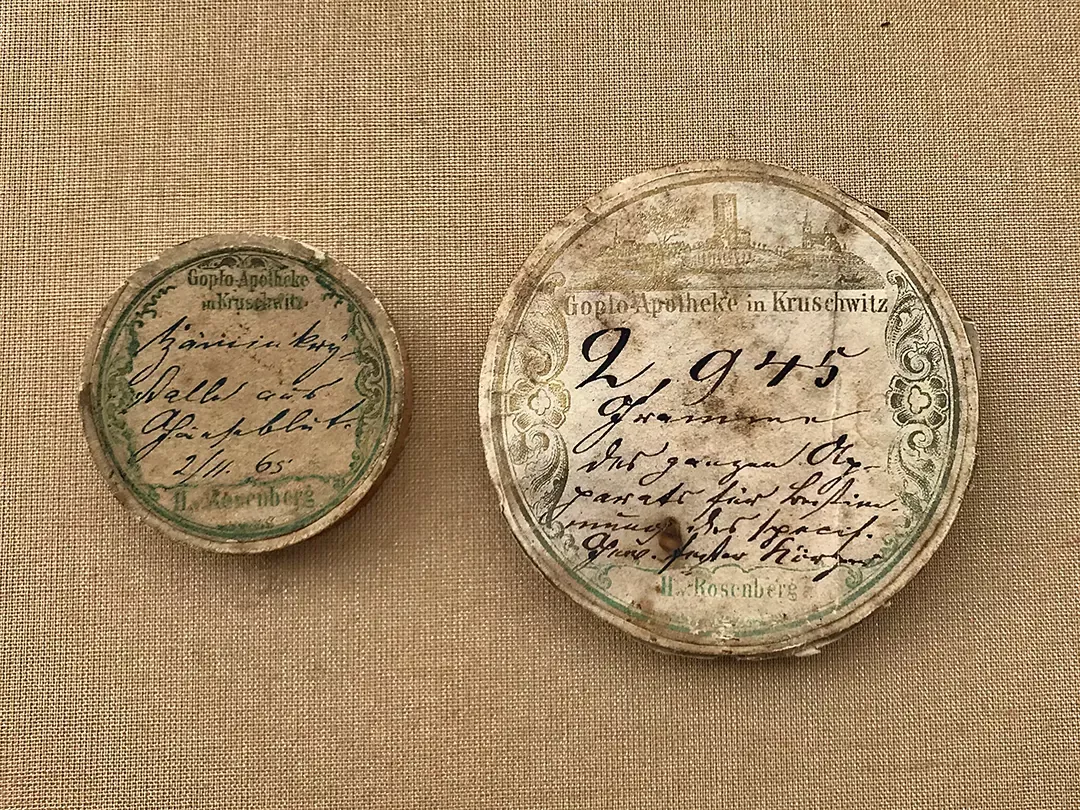 Goplo-Apotheke
in Kruschwitz
Häminkry-
stalle aus
Gänseblut.
2/11. 65.
H. v. Rosenberg
Goplo-Apotheke in Kruschwitz
2,945
Gramme
des ganzen Ap-
parats für Bestim-
mung des specif.
Gew. fester Körper
H. v. Rosenberg